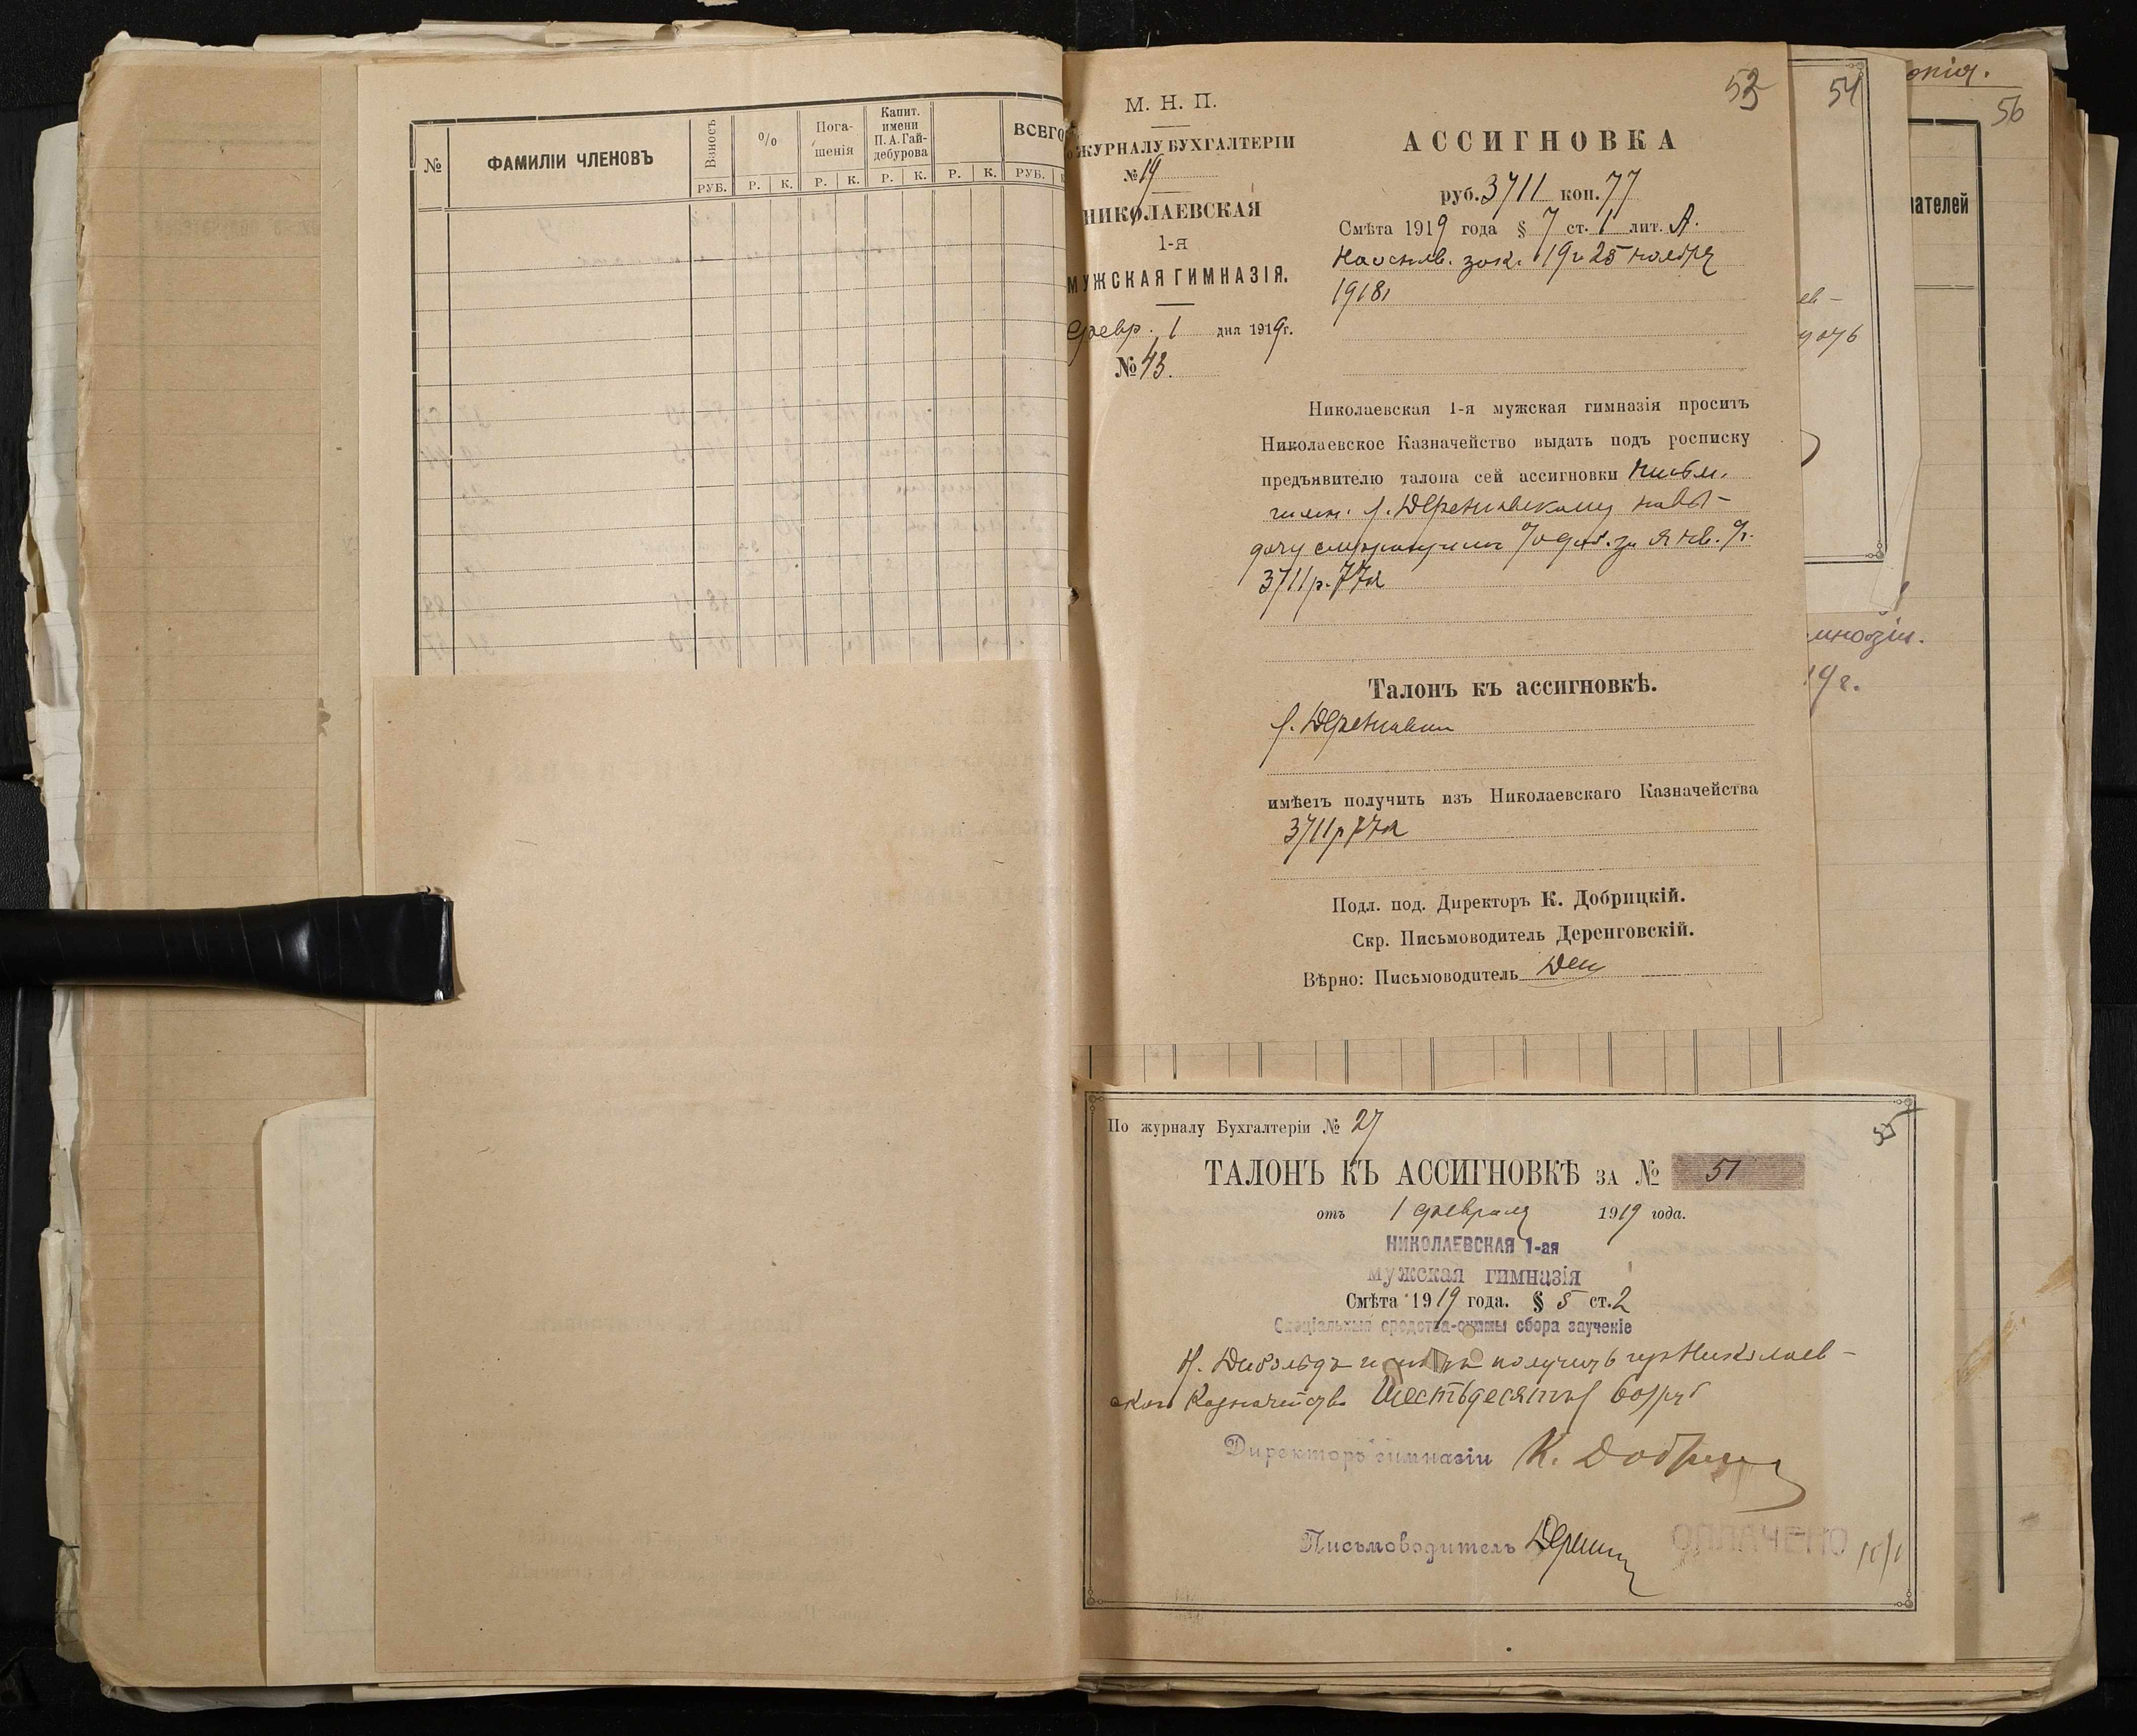 №
ФАМИЛІИ ЧЛЕНОВЪ
Взносъ
РУБ.
%
Р. К.
Пога-
шенія
Р. К.
Капит.
имени
П. А. Гай-
дебурова
Р. К.
Р. К.
ВСЕГО
РУБ.
М. Н. П.
ЖУРНАЛУ БУХГАЛТЕРІИ
№ 19
НИКОЛАЕВСКАЯ
1-я
МУЖСКАЯ ГИМНАЗІЯ.
Февр. 1 дня 1919г.
№ 43.
53
АССИГНОВКА
руб. 3711 коп. 77
Смѣта 1919 года § 7 ст. 1 лит. А.
На основ. зак. 19 и 25 ноября
1918г
Николаевская 1-я мужская гимназія проситъ
Николаевское Казначейство выдать подъ росписку
предъявителю талона сей ассигновки Письм.
гимн. Деренговскому на вы-
дачу за янв.
3711 р. 77 к
Талонъ къ ассигновкѣ.
имѣетъ получить изъ Николаевскаго Казначейства
3711 р 77 к
Подл. под. Директоръ К. Добрицкій.
Скр. Письмоводитель Деренговскій.
Вѣрно: Письмоводитель
54
опія.
56
ателей
ев-
мназіи.
19 г.
По журналу Бухгалтеріи № 27
55
ТАЛОНЪ КЪ АССИГНОВКѢ ЗА № 51
отъ 1 февраля 1919 года.
НИКОЛАЕВСКАЯ 1-ая
мужская гимназія
Смѣта 1919 года. § 5 ст. 2
Спеціальныя средства-суммы сбора заученіе
получить изъ Николаев-
скаго Казначейства Шестьдесятъ 60 руб
Директоръ гимназіи К. Добриц
Письмоводитель Дерен
ОПЛАЧЕНО